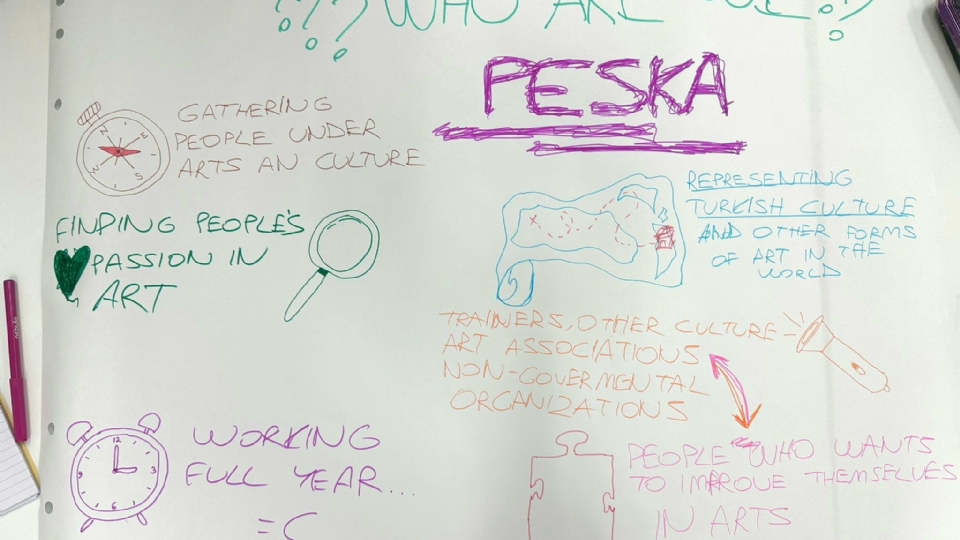 ??? WHO ARE WE ??
PESKA
GATHERING
PEOPLE UNDER
ARTS AN CULTURE
FINDING PEOPLE'S
PASSION IN
ART
REPRESENTING
TURKISH CULTURE
AND OTHER FORMS
OF ART IN THE
WORLD
TRAINERS, OTHER CULTURE
ART ASSOCIATIONS
NON-GOVERMENTAL
ORGANIZATIONS
WORKING
FULL YEAR...
=(
12
3
6
9
N
E
S
W
PEOPLE WHO WANTS
TO IMPROVE THEMSELVES
IN ARTS